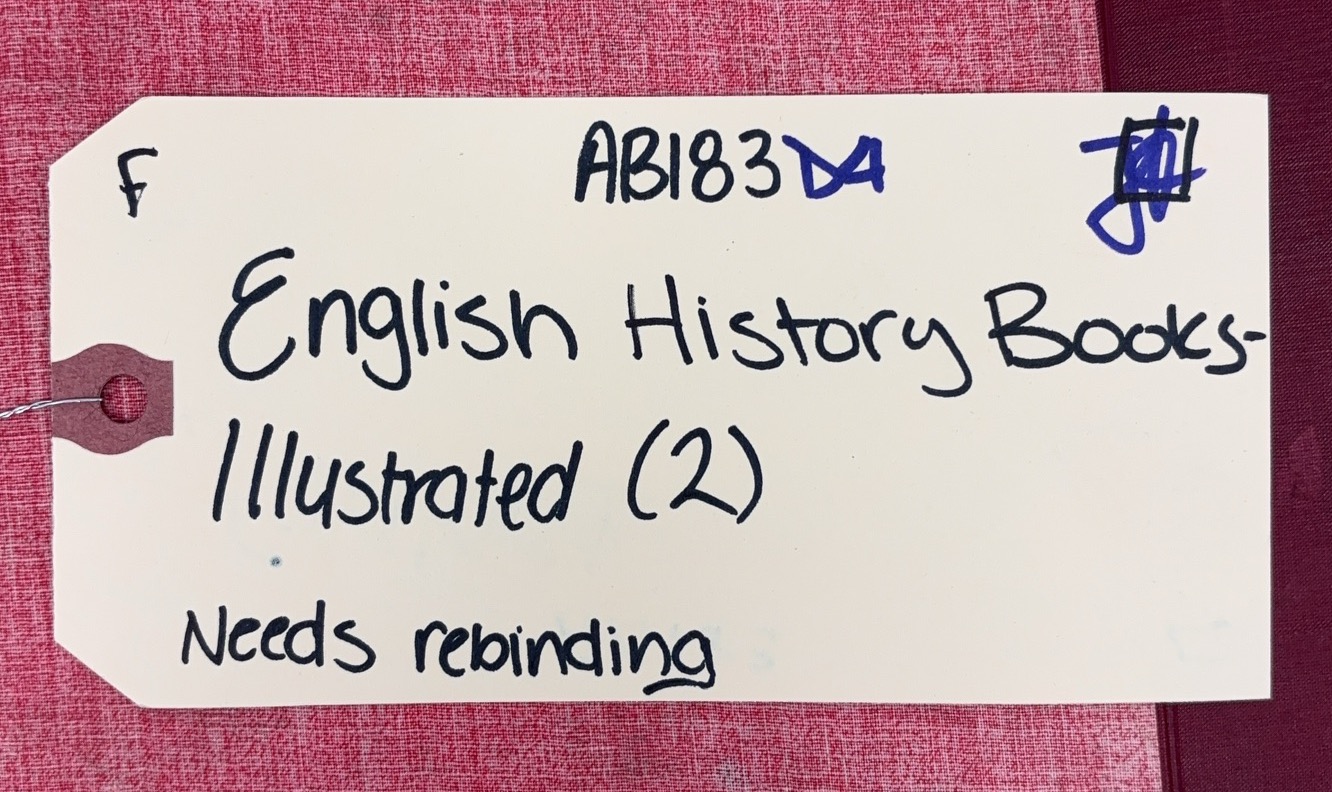 F
AB183 D4
English History Books-
Illustrated (2)
Needs rebinding